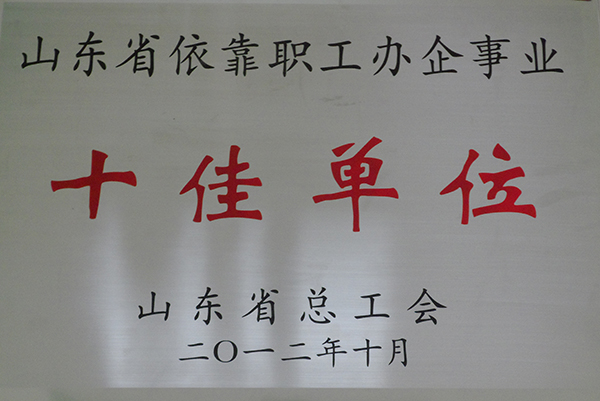 山东省依靠职工办企事业
十佳单位
山东省总工会
二〇一二年十月